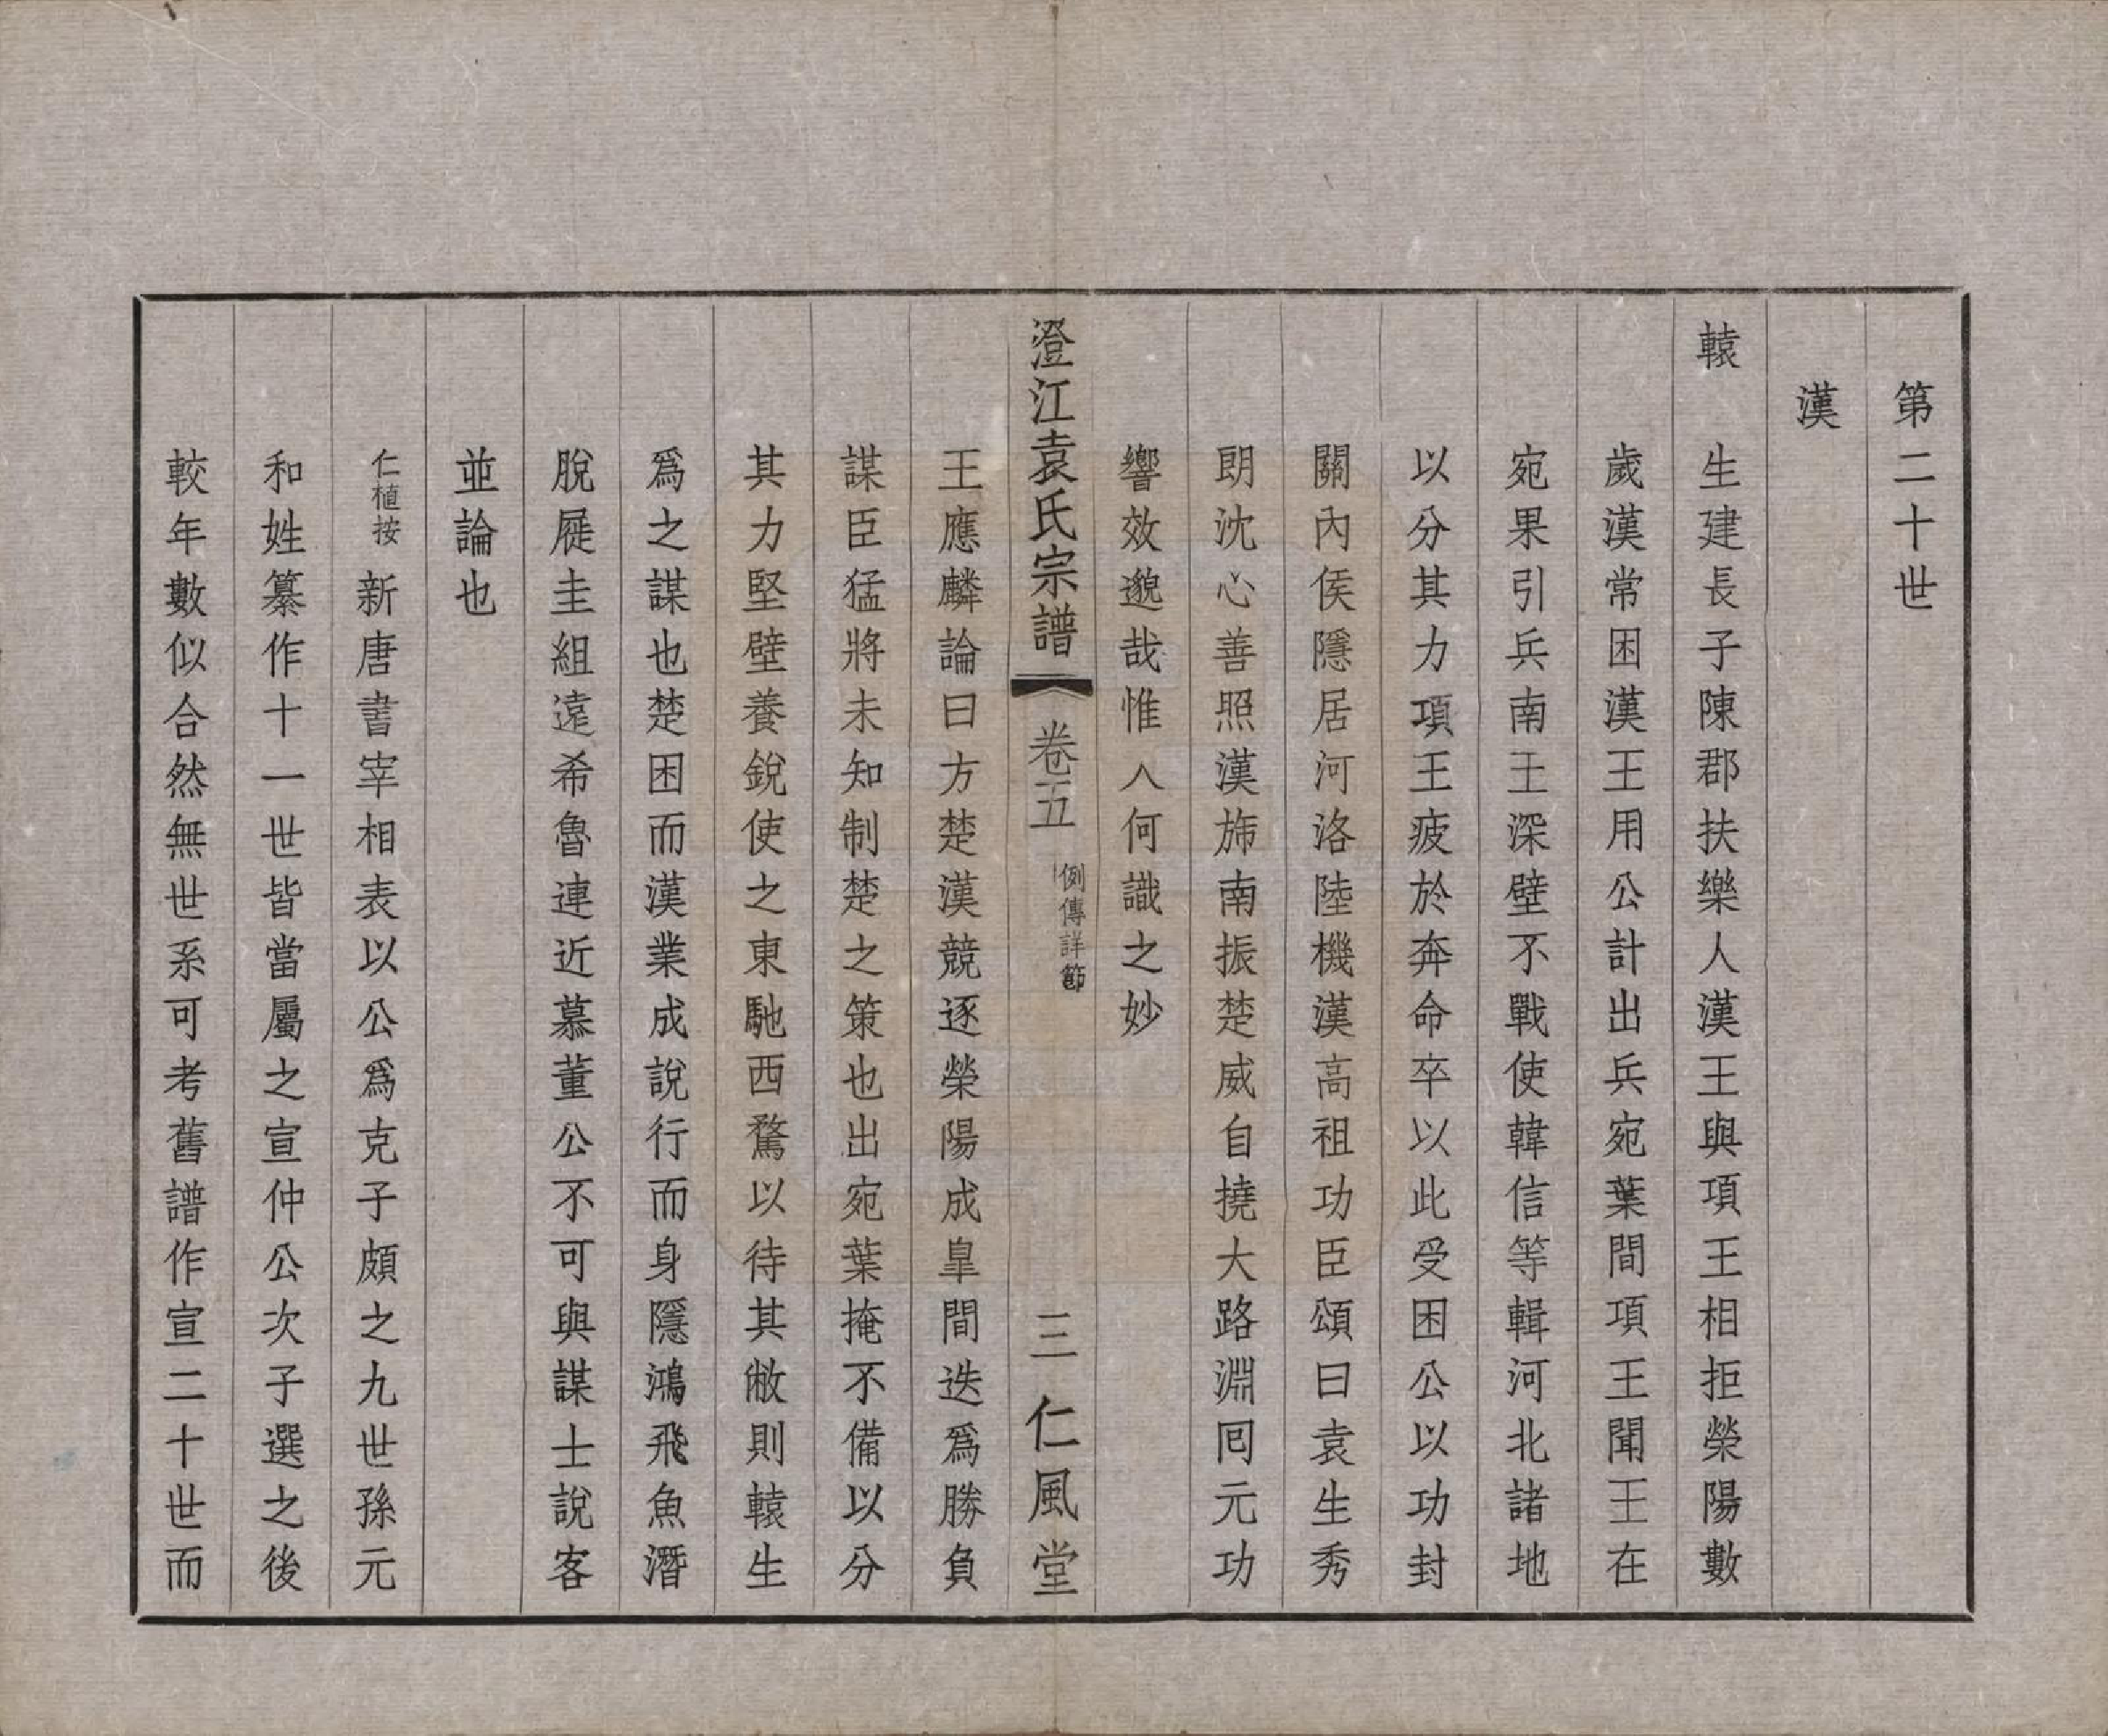 第二十世
漢
轅　生建長子陳郡扶樂人漢王與項王相拒榮陽數
歲漢常困漢王用公計出兵宛葉間項王聞王在
宛果引兵南王深壁不戰使韓信等輯河北諸地
以分其力項王疲於奔命卒以此受困公以功封
關內侯隱居河洛陸機漢高祖功臣頌曰袁生秀
朗沈心善照漢旆南振楚威自撓大路淵囘元功
響效邈哉惟人何識之妙
澄江袁氏宗譜　卷五　例傳詳節　三　仁風堂
王應麟論曰方楚漢競逐榮陽成臯間迭爲勝負
謀臣猛將未知制楚之策也出宛葉掩不備以分
其力堅壁養銳使之東馳西騖以待其敝則轅生
爲之謀也楚困而漢業成說行而身隱鴻飛魚潛
脫屣圭組遠希魯連近慕董公不可與謀士說客
並論也
仁植按　新唐書宰相表以公爲克子頗之九世孫元
和姓纂作十一世皆當屬之宣仲公次子選之後
較年數似合然無世系可考舊譜作宣二十世而